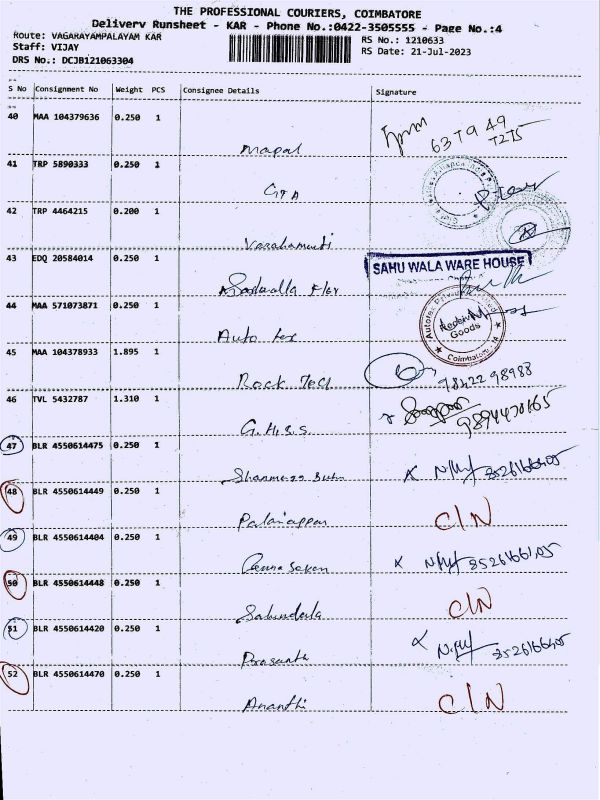 THE PROFESSIONAL COURIERS, COIMBATORE
Delivery Runsheet - KAR - Phone No.:0422-3505555 - Page No.:4
Route: VAGARAYAMPALAYAM KAR
RS No.: 1210633
Staff: VIJAY
RS Date: 21-Jul-2023
DRS No.: DCJB121063304
S No Consignment No Weight PCS Consignee Details Signature
40 MAA 104379636 0.250 1 Mapal
63 T9 49
T2T5
41 TRP 5890333 0.250 1 GTA
42 TRP 4464215 0.200 1
43 EDQ 20584014 0.250 1
SAHU WALA WARE HOUSE
44 MAA 571073871 0.250 1 Auto tex
Received
Goods
Coimbatore - 14
45 MAA 104378933 1.895 1 Rock Tech
78422 98988
46 TVL 5432787 1.310 1 G.H.S.S.
47 BLR 4550614475 0.250 1
48 BLR 4550614449 0.250 1 Palaiappan C/N
49 BLR 4550614404 0.250 1
50 BLR 4550614448 0.250 1 C/N
51 BLR 4550614420 0.250 1 Prasanth
52 BLR 4550614470 0.250 1 Ananthi C/N